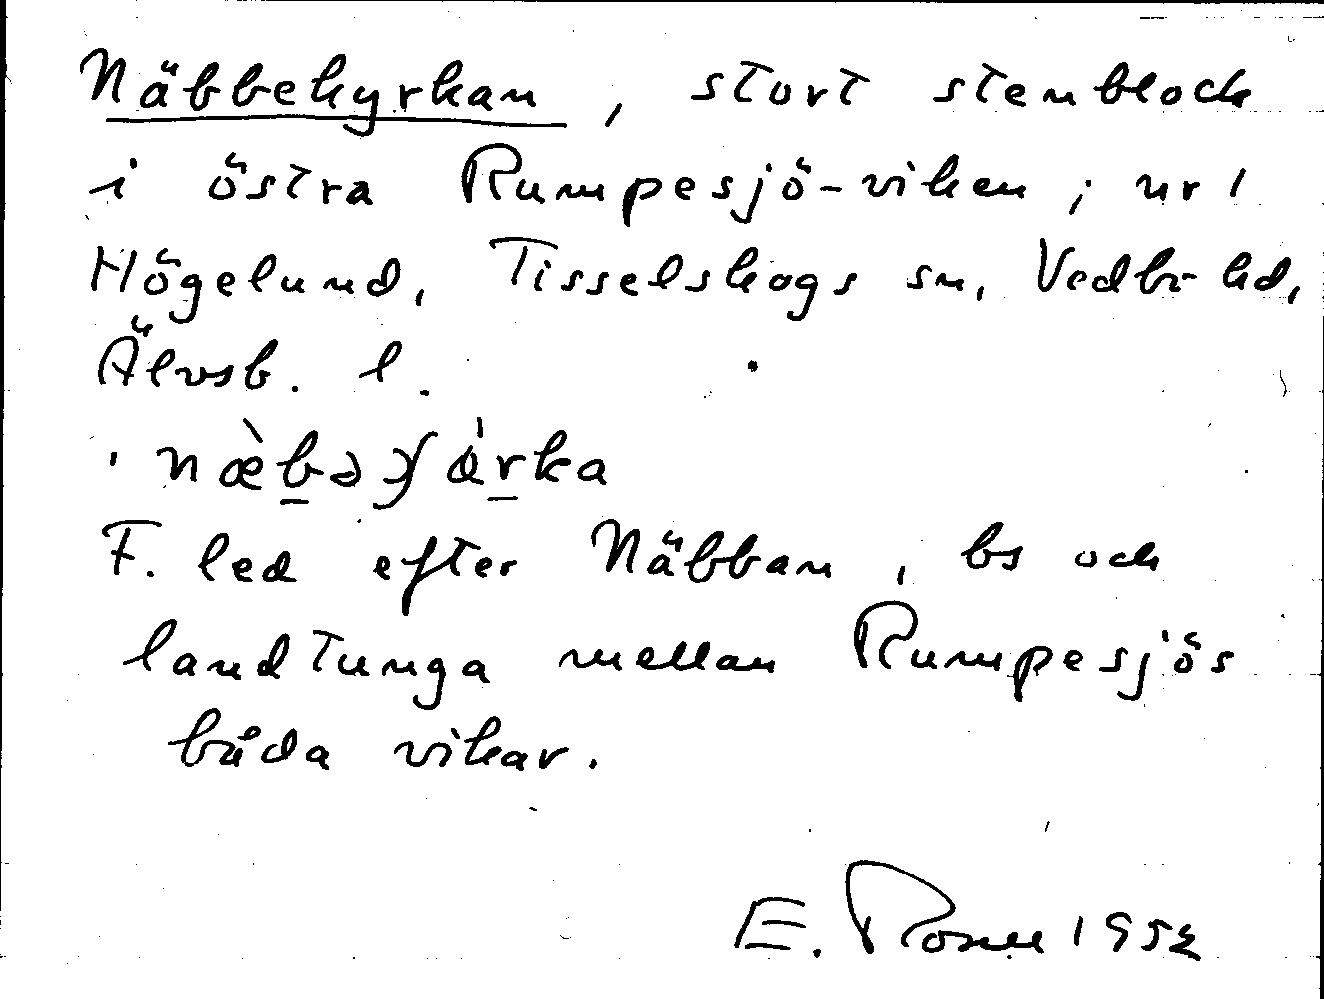 Näbbekyrkan, stort stenblock
i östra Rumpesjö-viken; nr 1
Högelund, Tisselskogs sn, Vedbo hd,
Älvsb. l.
F. led efter Näbban, bs och
landtunga mellan Rumpesjös
båda vikar.
E. 1952